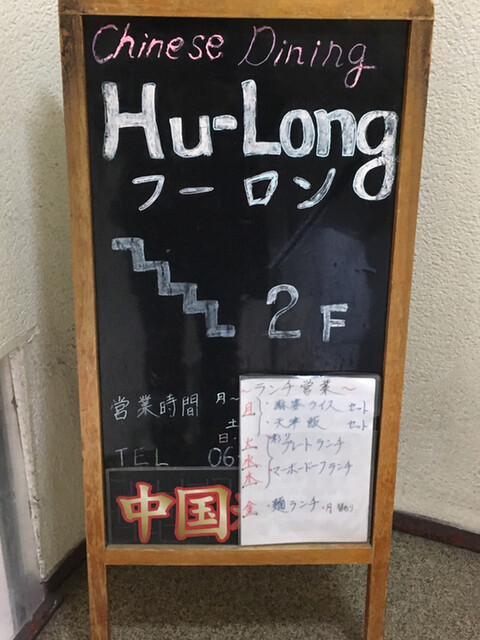 Chinese Dining
Hu-Long
フーロン
2F
営業時間 月〜
土
日・
TEL 06
中国
〜ランチ営業〜
月 ・麻婆ライス セット
・天津飯 セット
火 プレートランチ
水 マーボードーフランチ
木
金 ・麺ランチ ・月替り